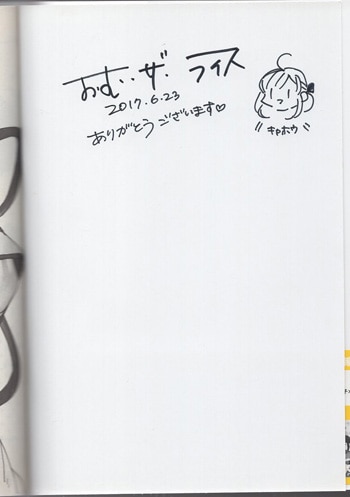 おむ・ザ・ライス
2017.6.23
ありがとうございます♡
キャホウ